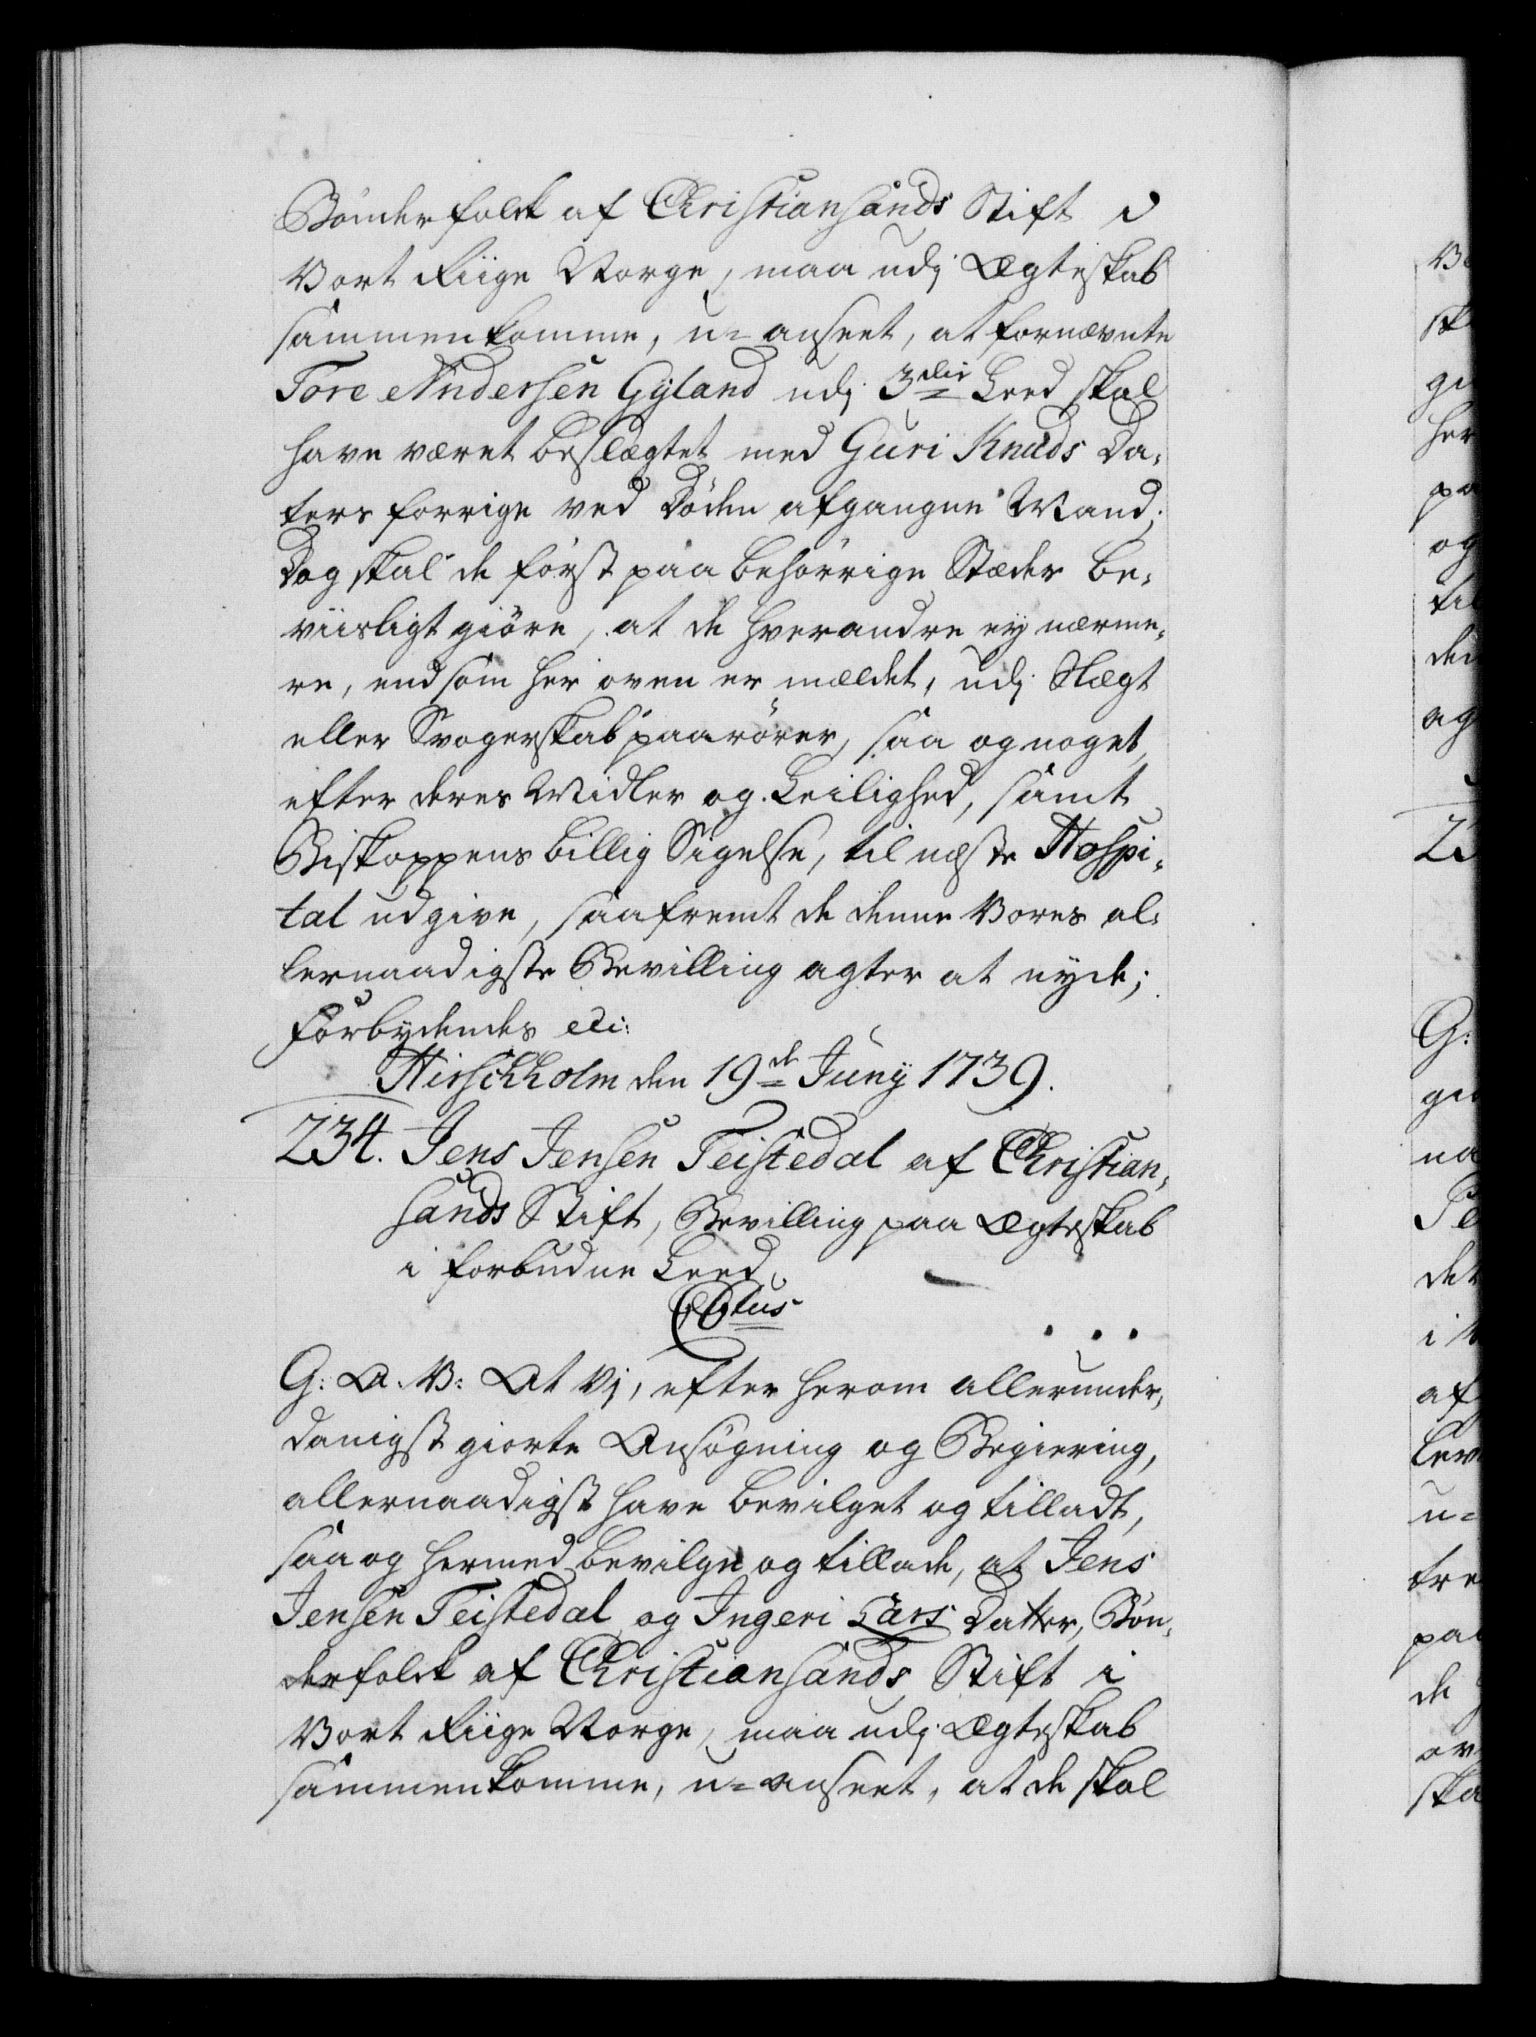 Bönderfolck af Christiansands Stift i
Vort Riige Norge, maa udj Ægteskab
sammenkomme, u-anseet, at fornævnte
Tore Andersen Gyland udj 3die Leed skal
have været beslægtet med Guri Knuds Da-
ters forrige ved Döden afgangne Mand;
Dog skal de först paa behörrige Stæder be-
viisligt giöre, at de hverandre ey nærme-
re, end som her oven er mældet, udj Slægt
eller Svogerskab paarörer, saa og noget,
efter deres Midler og Leilighed, samt
Biskoppens billig Sigelse, til næste Hospi-
tal udgive, saafremt de denne Vores al-
lernaadigste Bevilling agter at nyde;
Forbydendes etc:
Hirschholm den 19de Junij 1739.
234. Jens Jensen Teistedal af Christian-
sands Stift, Bevilling paa Ægteskab
i forbudne Leed.
G: A. V: At Vj, efter herom allerunder-
danigst giorte Ansögning og Begiering,
allernaadigst have bevilget og tilladt,
saa og hermed bevilge og tillade, at Jens
Jensen Teistedal og Ingeri Lars Datter, Bön-
derfolck af Christiansands Stift i
Vort Riige Norge, maa udj Ægteskab
sammenkomme, u-anseet, at de skal